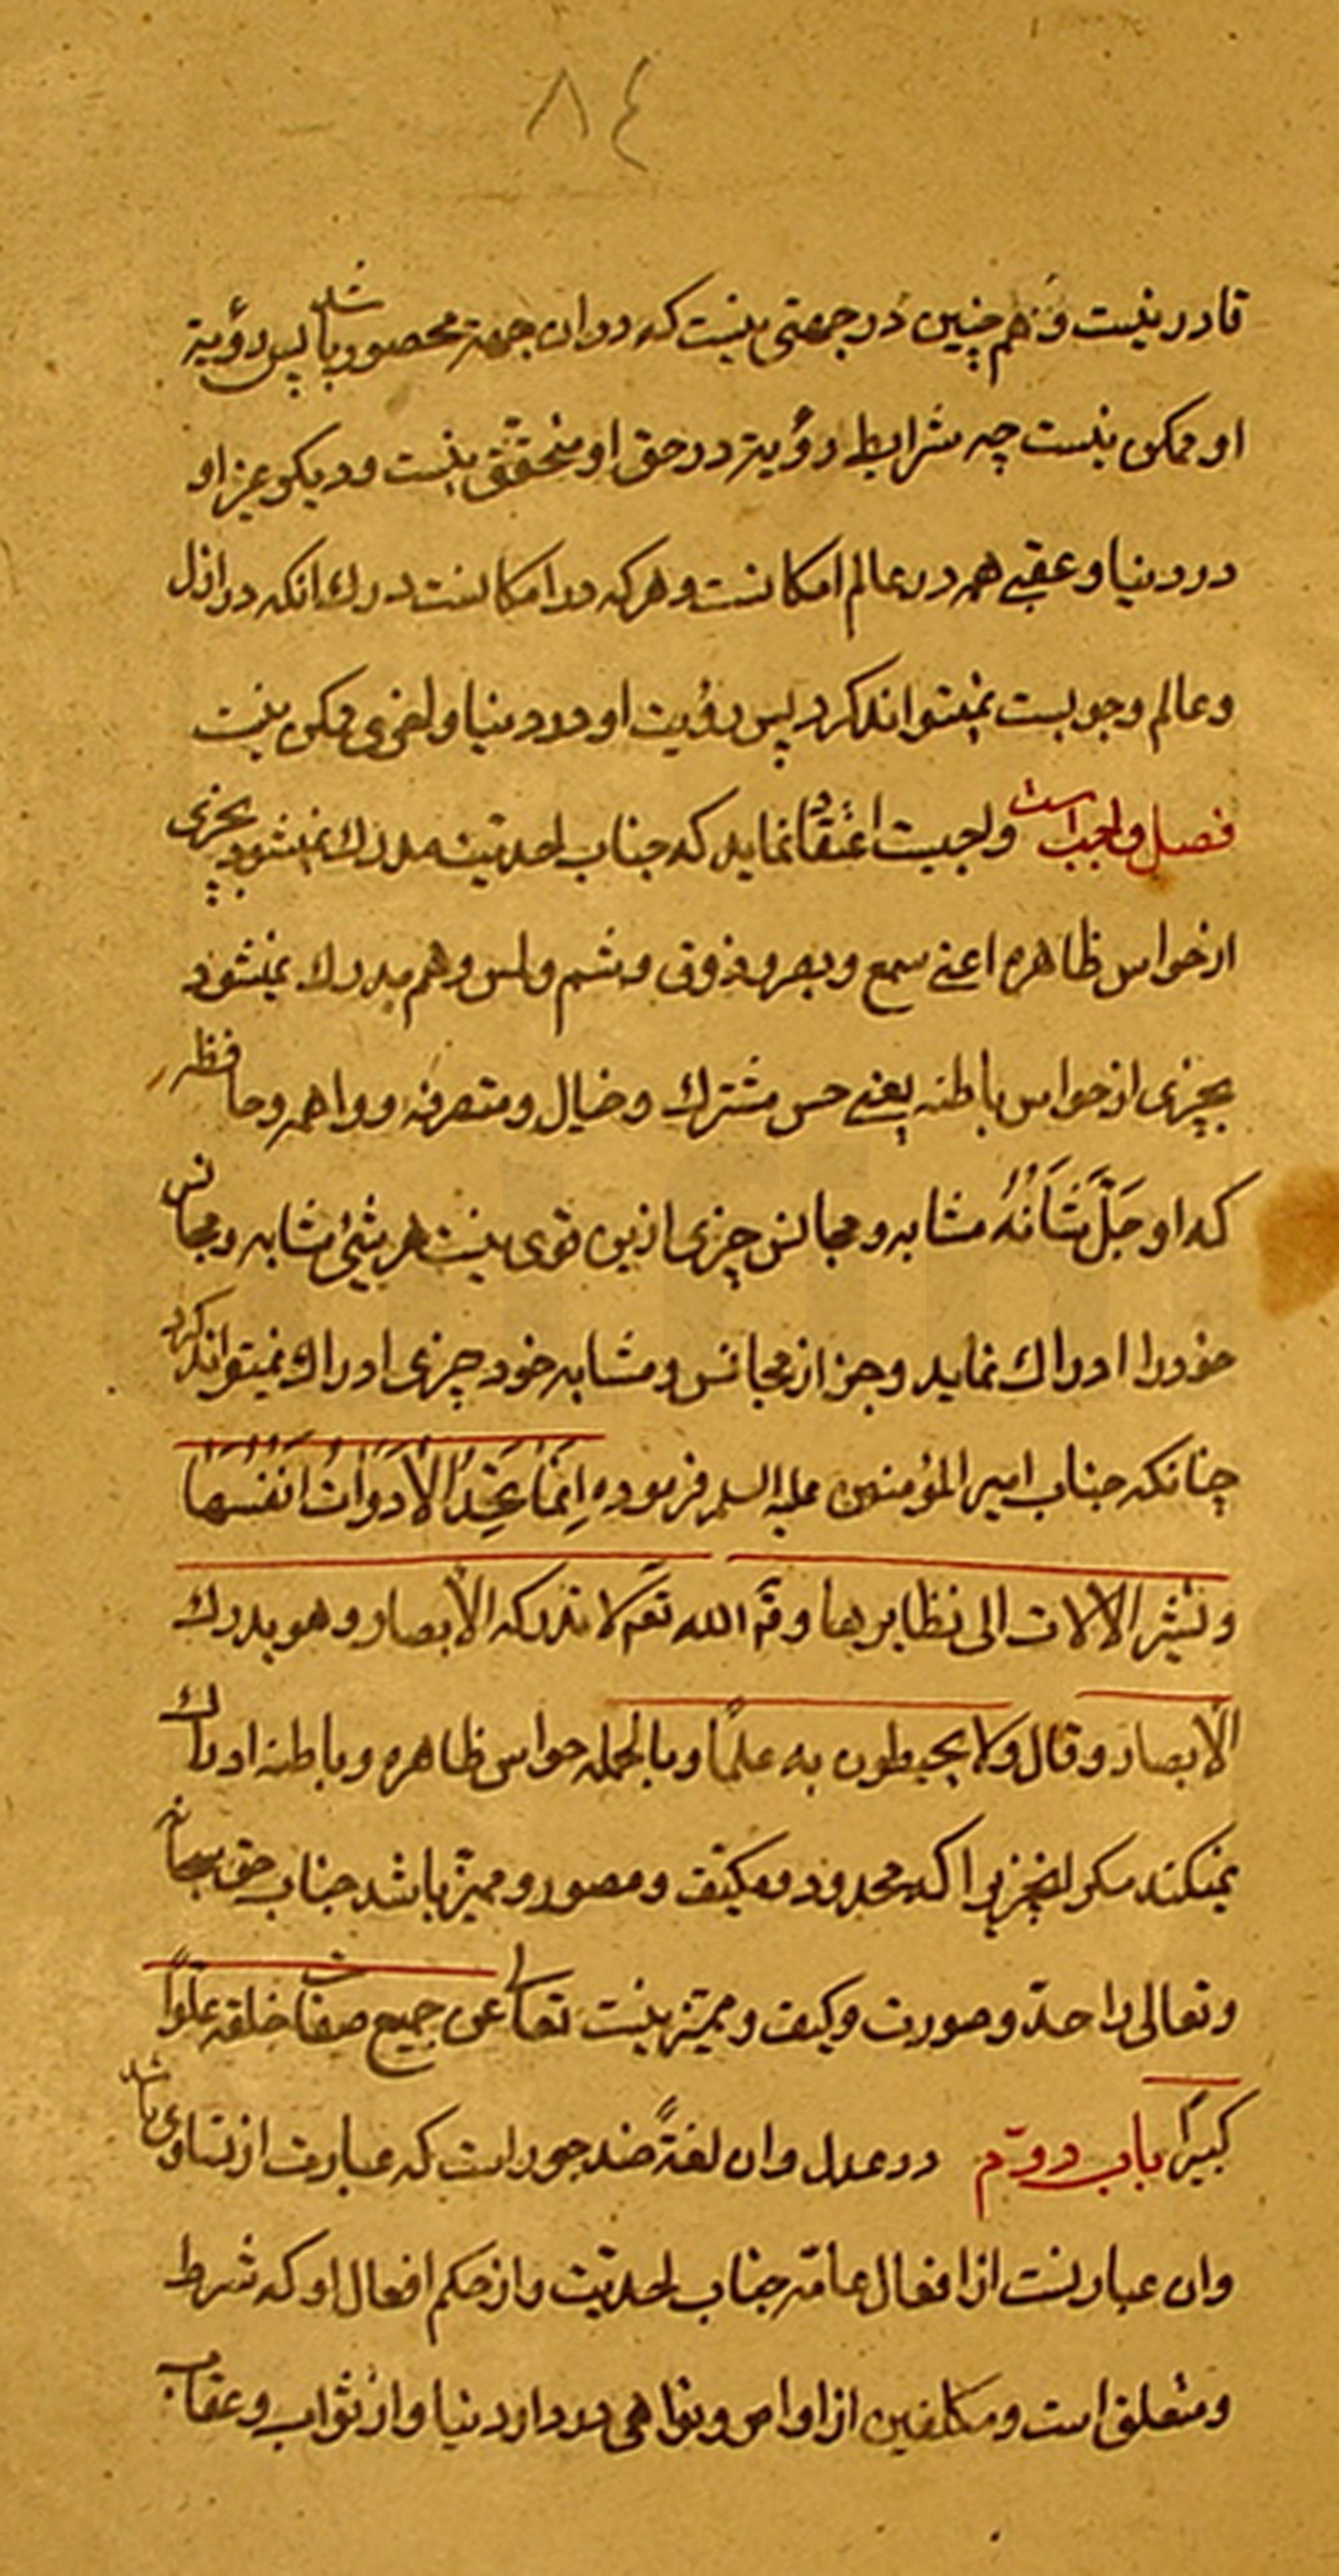 ٨٤
قادر نیست و هم چنین در جهتی نیست که در ان جهة محصور باشد پس رؤیة
او ممکن نیست چه شرایط رؤیة در حق او متحقق نیست و دیکر غیر او
در دنیا و عقبی همه در عالم امکانست و هر که در امکانست درك انکه در ازل
و عالم وجوبست نمیتواند کرد پس رؤیت او در دنیا و اخری ممکن نیست
فصل واجب است واجبست اعتقاد نماید که جناب احدیت مدرك نمیشود بچیزی
از حواس ظاهره اعنی سمع و بصر و ذوق و شم و لمس و هم مدرك نمیشود
بچیزی از حواس باطنه یعنی حس مشترك و خیال و متصرفه و واهمه و حافظه
که او جَلَّ شَأنُهُ مشابه و مجانس چیزی ازین قوی نیست هر شیء مشابه و مجانس
خود را ادراك نماید و جز از مجانس و مشابه خود چیزی ادراك نمیتواند کرد
چنانکه جناب امیر المؤمنین علیه السلم فرموده اِنَّمَا تَحُدُّ الاَدَوَاتُ اَنْفُسَهَا
و تشیر الالات الی نظایرها و قم الله تعم لا تدرکه الابصار و هو یدرك
الابصار و قال ولا یحیطون به علمًا و بالجمله حواس ظاهره و باطنه ادراك
نمیکند مکر انچیزیرا که محدود و مکیّف و مصور و ممیّز باشد جناب حق سبحانه
و تعالی را حدّ و صورت و کیف و ممیّز نیست تعالی عن جمیع صفات خلقه علوًا
کبیرًا باب دوّم در عدل و ان لغةً ضد جور است که عبارت از تساوی باشد
و ان عبارتست از افعال عامّه جناب احدیّت و از حکم افعال او که شرط
و متعلق است و مکلفین از اوامر و نواهی در دار دنیا و از ثواب و عقاب